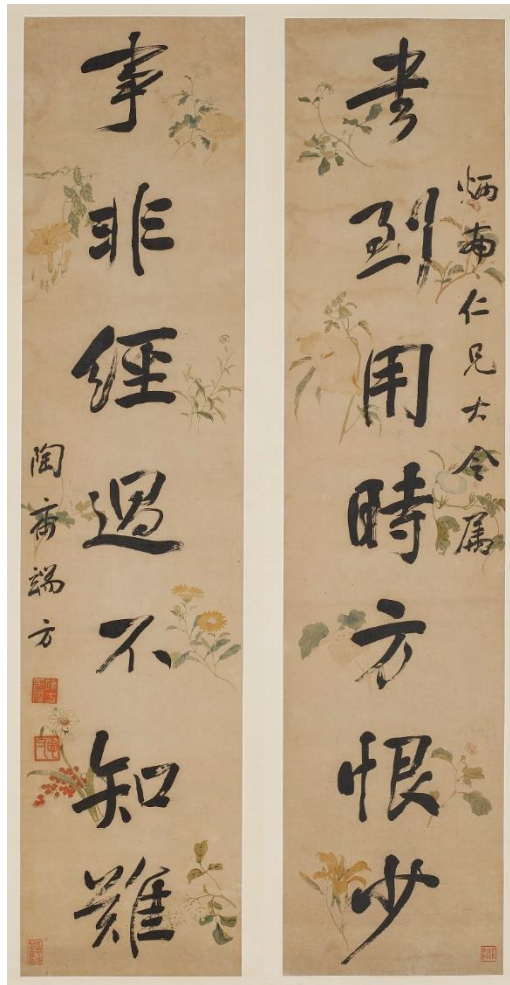 書到用時方恨少
炳南仁兄大令属
事非經過不知難
陶斋端方